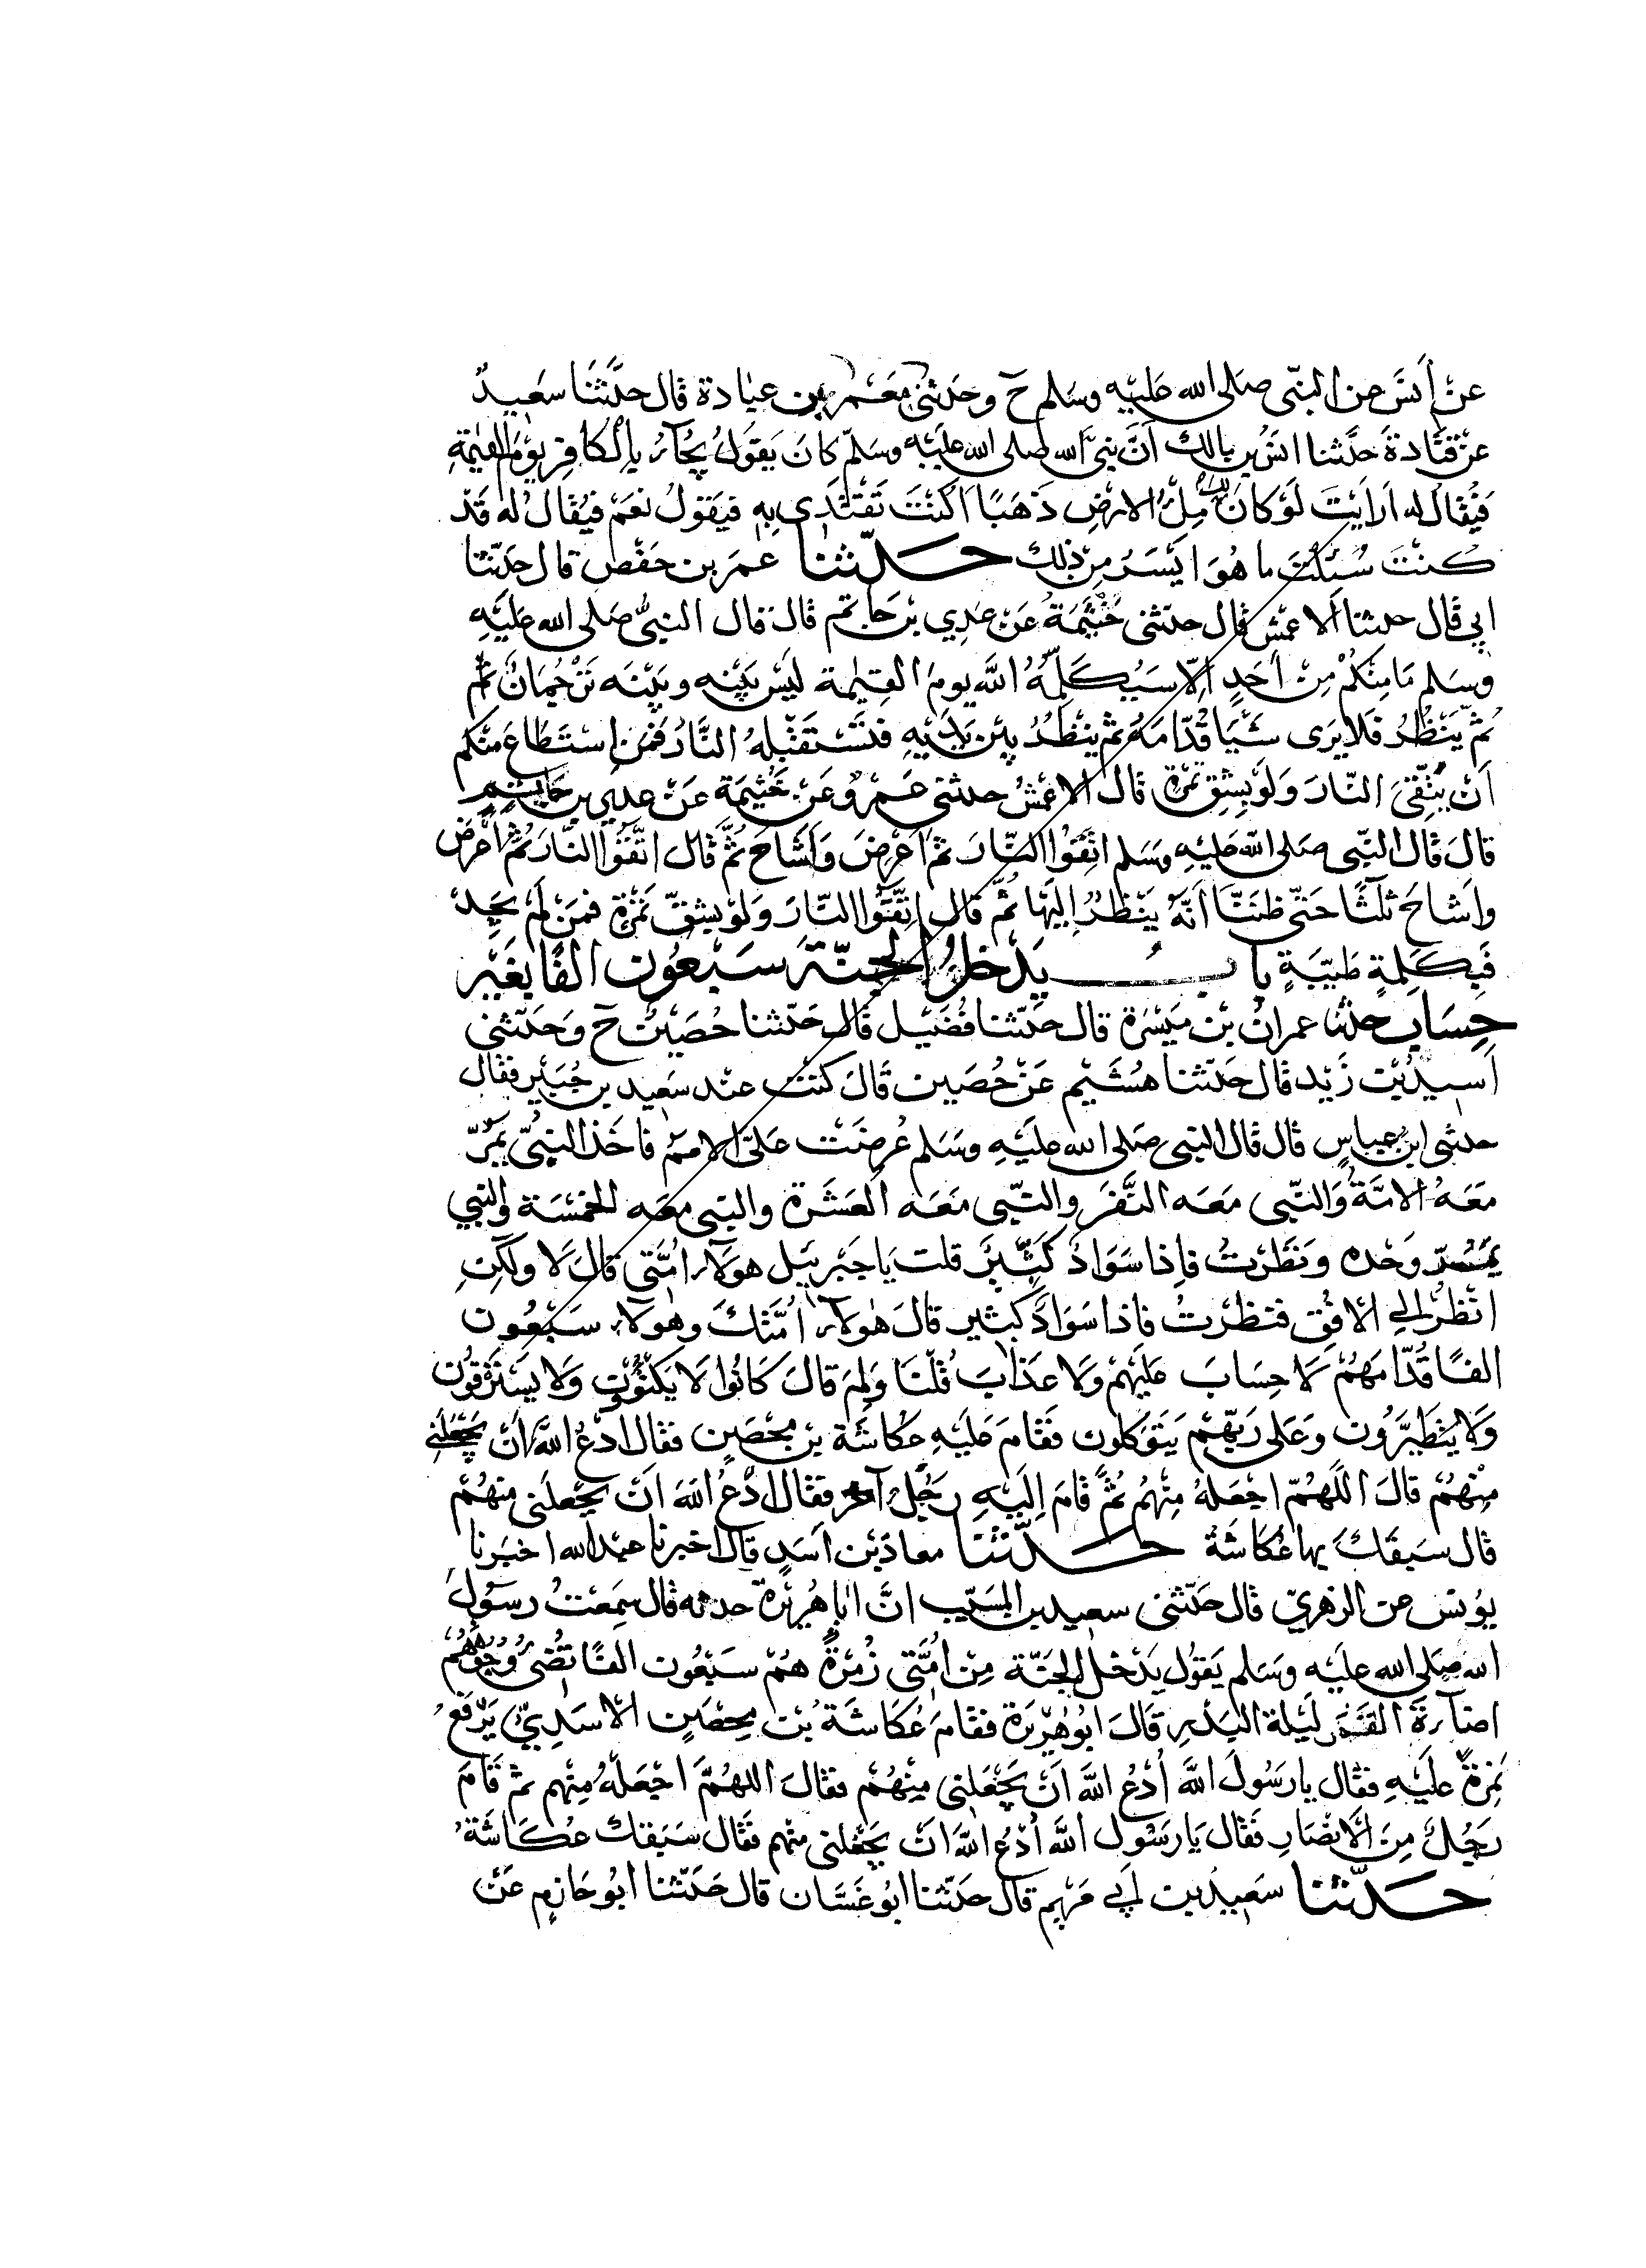 عَنْ أَنَسٍ عن النبّي صَلى الله عَليْهِ وسَلم حَ وحَدثني مَعْمَر بن عبَادة قال حدَّثَنَا سَعِيدٌ
عَنْ قَتَادةَ حَدَّثنا انسُ بن مالك أنَّ نبيَّ الله صلى الله عَليْه وسَلّم كانَ يَقوُلُ يُجَآءُ بِالْكافِرِ يَوْمَ القِيٰمَةِ
فَيُقالُ له ارَايْتَ لَوْ كانَ لك مِلْءُ الارْضِ ذَهَبًا اكُنْتَ تَفْتَدِى بِهِ فيَقولُ نعَمْ فيُقالُ لهُ قَدْ
كُنْتَ سُئِلْتَ ما هُوَ ايْسَرُ مِن ذلِك حَدّثنا عمَر بن حَفْصٍ قال حَدّثنا
ابي قال حدثنا الاعمش قال حدّثنى خَيْثَمَةُ عَنْ عَدِي بن حَاتم قالَ قال النبيُّ صَلى الله عَليْهِ
وسَلم مَا مِنكُمْ مِنْ أحَدٍ اِلّا سَيُكَلِّمُهُ اللَّه يومَ القِيٰمة ليْسَ بَيْنِه وبَيْنَه تَرْجُمَانٌ ثم
ثمّ يَنْظُرُ فَلا يَرى شَيْئًا قُدّامَهُ ثمّ ينْظُرُ بيْن يَدَيْهِ فتَسْتَقْبِلهُ النَّارُ فمَنِ اسْتَطَاعَ منْكم
اَنْ يَتَّقىَ النّارَ وَلَوْ بِشِقِ تَمْرَةٍ قالَ الاعمَشُ حدثنى عَمْرٌو عَنْ خَيْثمَةَ عَنْ عدِي بن حَاتمٍ
قالَ قالَ النبّى صَلى الله عَليْهِ وسَلم اتّقَوُا النّارَ ثم اَعْرَضَ وَاَشَاحَ ثُمَّ قالَ اتَّقُوا النّارَ ثُمَّ اَعْرَضَ
واَشاحَ ثَلٰثًا حَتّى ظنَنَّا اَنّهُ يَنْظُرُ إليْهَا ثُمّ قالَ اتَّقَوُا النّارَ وَلوْ بشِقّ تَمْرَةٍ فمَنْ لمْ يجِدْ
فَبِكَلِمةٍ طَيِّبَةٍ بابُ يَدْخلُ الجنّةَ سَبْعُون الفًا بغَيْر
حِسَابٍ حدثنا عمرانُ بْن مَيْسَرَة قال حدَّثنا فُضَيْل قال حَدّثنا حُصَيْنٌ حَ وَحَدّثني
اَسِيدُ بْن زَيْد قال حَدّثنا هُشَيْم عَنْ حُصَين قَالَ كنت عند سَعِيد بن جُبَيْر فقال
حدثنى ابن عباسٍ قال قال النبى صَلى الله عليْهِ وسَلم عُرِضَتْ عَليّ الاممُ فاخَذ النبيُّ يَمُرّ
مَعَهُ الامّةُ وَالنّبى مَعَه النَّفَرَ والنبّى مَعَه العَشَرة والنبى معَه الخمْسَة والنبي
يَمُرّ وَحْده ونَظَرْتُ فاِذا سَوَادٌ كَثِيرٌ قلت يَا جَبْرئيل هولآء امّتى قالَ لا ولكِنِ
انْظُرْ الي الافُق فنظرْتُ فاذا سَوَادٌ كَبثير قالَ هٰولآء امّتُكَ وهٰولآء سَبْعُون
الفًا قُدّامَهُمْ لَا حِسَابَ عليْهِمْ وَلا عذَابَ قُلْتَا وَلِمَ قالَ كَانُوا لَا يَكْتوُون وَلا يَسْترْقوُن
وَلا يتطَيَّرُون وَعَلى رَبِّهِمْ يَتَوكلون فقَامَ عَليْهِ عكاشَة بْن مِحْصَنٍ فقال ادعُ اللَّهَ انْ يَجْعَلَنِي
مِنْهُمْ قالَ اللّهُمّ اجْعَلهُ مِنْهُم ثمَّ قامَ اِليْهِ رَجُلٌ آخر فقالَ ادْعُ اللهَ انْ يجْعلنى منهُمْ
قال سَبقكَ بها عُكاشَةُ حَدّثنا معاذ بْن اسَدٍ قالَ اخبرنا عبد الله اخبَرنا
يوُنس عن الزهريّ قال حَدّثني سعيد بن المسَيّب انَّ ابَا هُرَيْرَةَ حدثه قال سَمِعْتُ رسوُلَ
الله صَلى الله عليْه وسَلم يَقوُل يَدْخلُ الجَنّة مِنْ امّتى زُمْرَةٌ هُمْ سَبْعُون الفًا تُضيُ وُجُوهُهُمْ
اضآءَةَ القَمَر ليْلة البَدْرِ قَالَ ابُوهُرَيْرَة فقَامَ عُكَاشَةُ بْن مِحْصَنٍ الاسَدِيّ يَرْفَعُ
نَمِرَةً عليْهِ فقال يارَسُولَ اللَّه ادْعُ اللَّه اَنْ يَجْعَلنى مِنْهُمْ فقالَ اللهُمَّ اجْعَلهُ مِنْهم ثمّ قامَ
رَجُلٌ مِنَ الانْصَارِ فقَال يَارسُول اللَّه اُدْعُ اللَّه انْ يَجْعَلنى منْهم فقَال سَبَقك عُكاشَةُ
حَدّثنا سَعِيد بْن اَبي مَرْيم قال حَدّثنا ابُو غسَّان قال حَدّثنا ابُو حَازم عَنْ